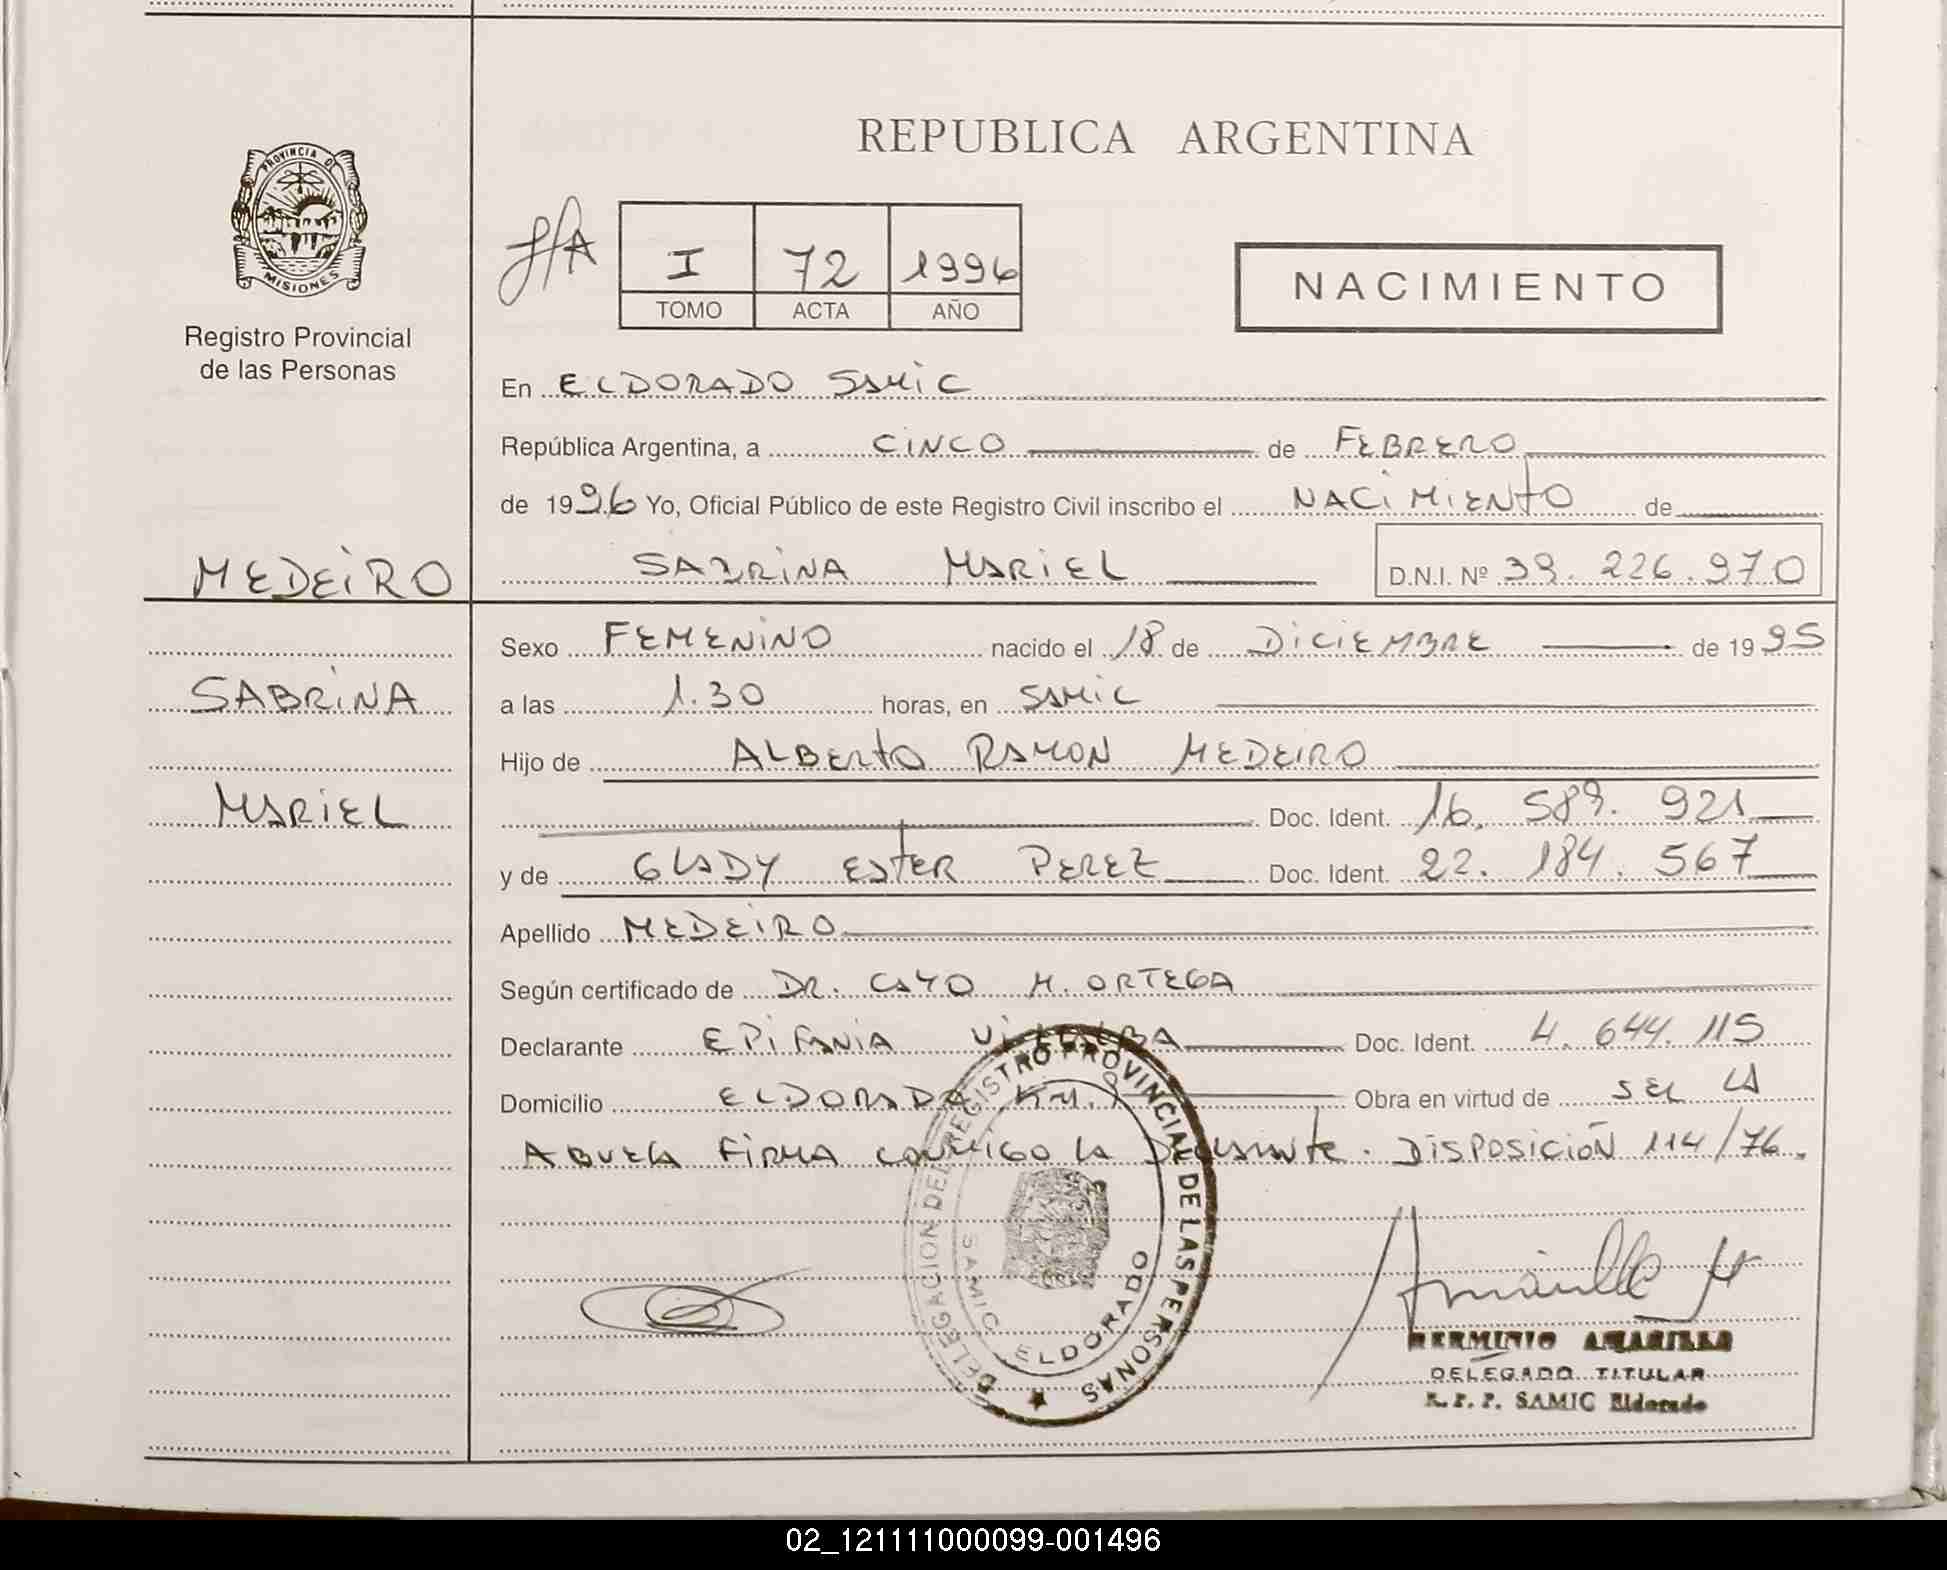 REPUBLICA ARGENTINA
PROVINCIA D
MISIONES
Registro Provincial
de las Personas
I 72 1996
TOMO ACTA AÑO
NACIMIENTO
En ELDORADO SAMIC
República Argentina, a CINCO de FEBRERO
de 1996 Yo, Oficial Público de este Registro Civil inscribo el NACIMIENTO de
MEDEIRO
SABRINA MARIEL D.N.I. Nº 39.226.970
Sexo FEMENINO nacido el 18 de DICIEMBRE de 1995
SABRINA
a las 1.30 horas, en SAMIC
Hijo de ALBERTO RAMON MEDEIRO
MARIEL
Doc. Ident. 16.589.921
y de GLADY ESTER PEREZ Doc. Ident. 22.184.567
Apellido MEDEIRO
Según certificado de DR. CAYO M. ORTEGA
Declarante EPIFANIA VILLALBA Doc. Ident. 4.644.115
Domicilio ELDORADO KM. Obra en virtud de SER LA
ABUELA FIRMA CONMIGO LA DECLARANTE. DISPOSICIÓN 114/76.
DELEGACION DEL REGISTRO PROVINCIAL DE LAS PERSONAS
SAMIC ELDORADO
Amarilla H
HERMINIO AMARILLA
DELEGADO TITULAR
R.P.P. SAMIC Eldorado
02_121111000099-001496